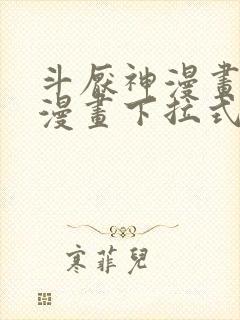 斗厭神漫畫
漫畫下拉式
寒菲兒